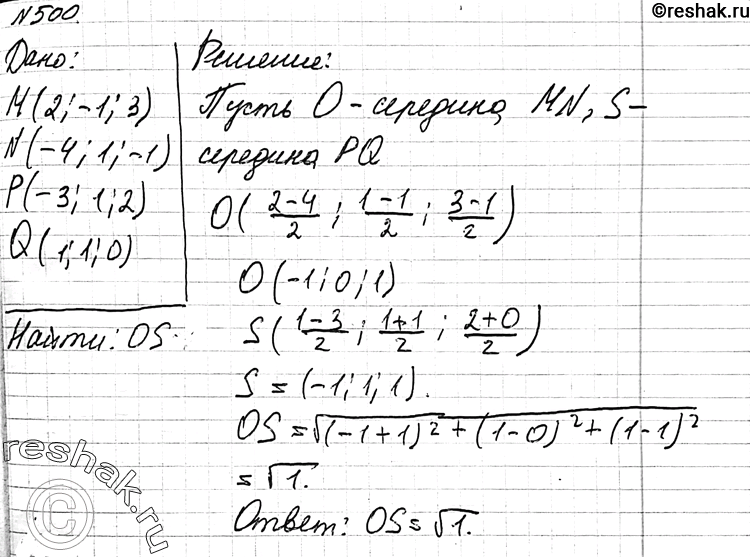 ©reshak.ru
N 500.
Дано:
M(2; -1; 3)
N(-4; 1; -1)
P(-3; 1; 2)
Q(1; 1; 0)
Найти: OS.
Решение:
Пусть O - середина MN, S -
середина PQ
O( (2-4)/2 ; (1-1)/2 ; (3-1)/2 )
O(-1; 0; 1)
S( (1-3)/2 ; (1+1)/2 ; (2+0)/2 )
S = (-1; 1; 1).
OS = √((-1+1)² + (1-0)² + (1-1)²)
= √1.
Ответ: OS = √1.
reshak.ru